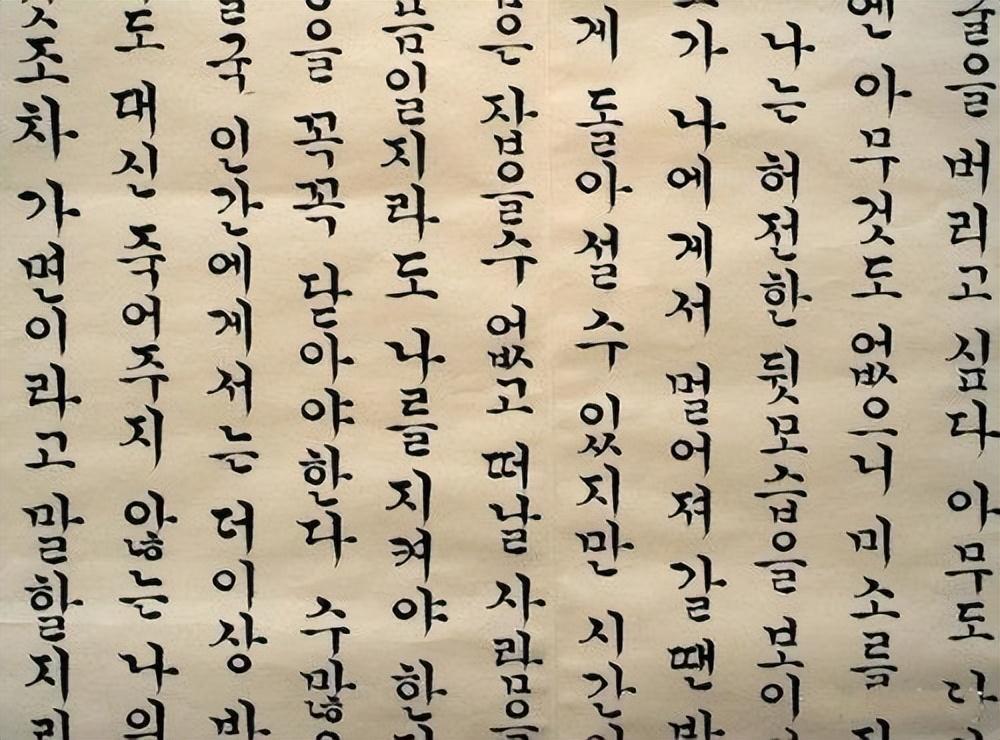 굴을 버리고 심다 아무도
엔 아무것도 없으니 미소를
나는 허전한 뒷모습을 보이
가 나에게서 멀어져 갈땐 바
게 돌아설 수 있지만 시간
은 잡을수 없고 떠날 사람을
음일지라도 나를 지켜야 한
을 꼭꼭 닫아야한다 수많
국 인간에게서는 더이상 바
도 대신 죽어주지 않는 나의
것조차 가면이라고 말할지